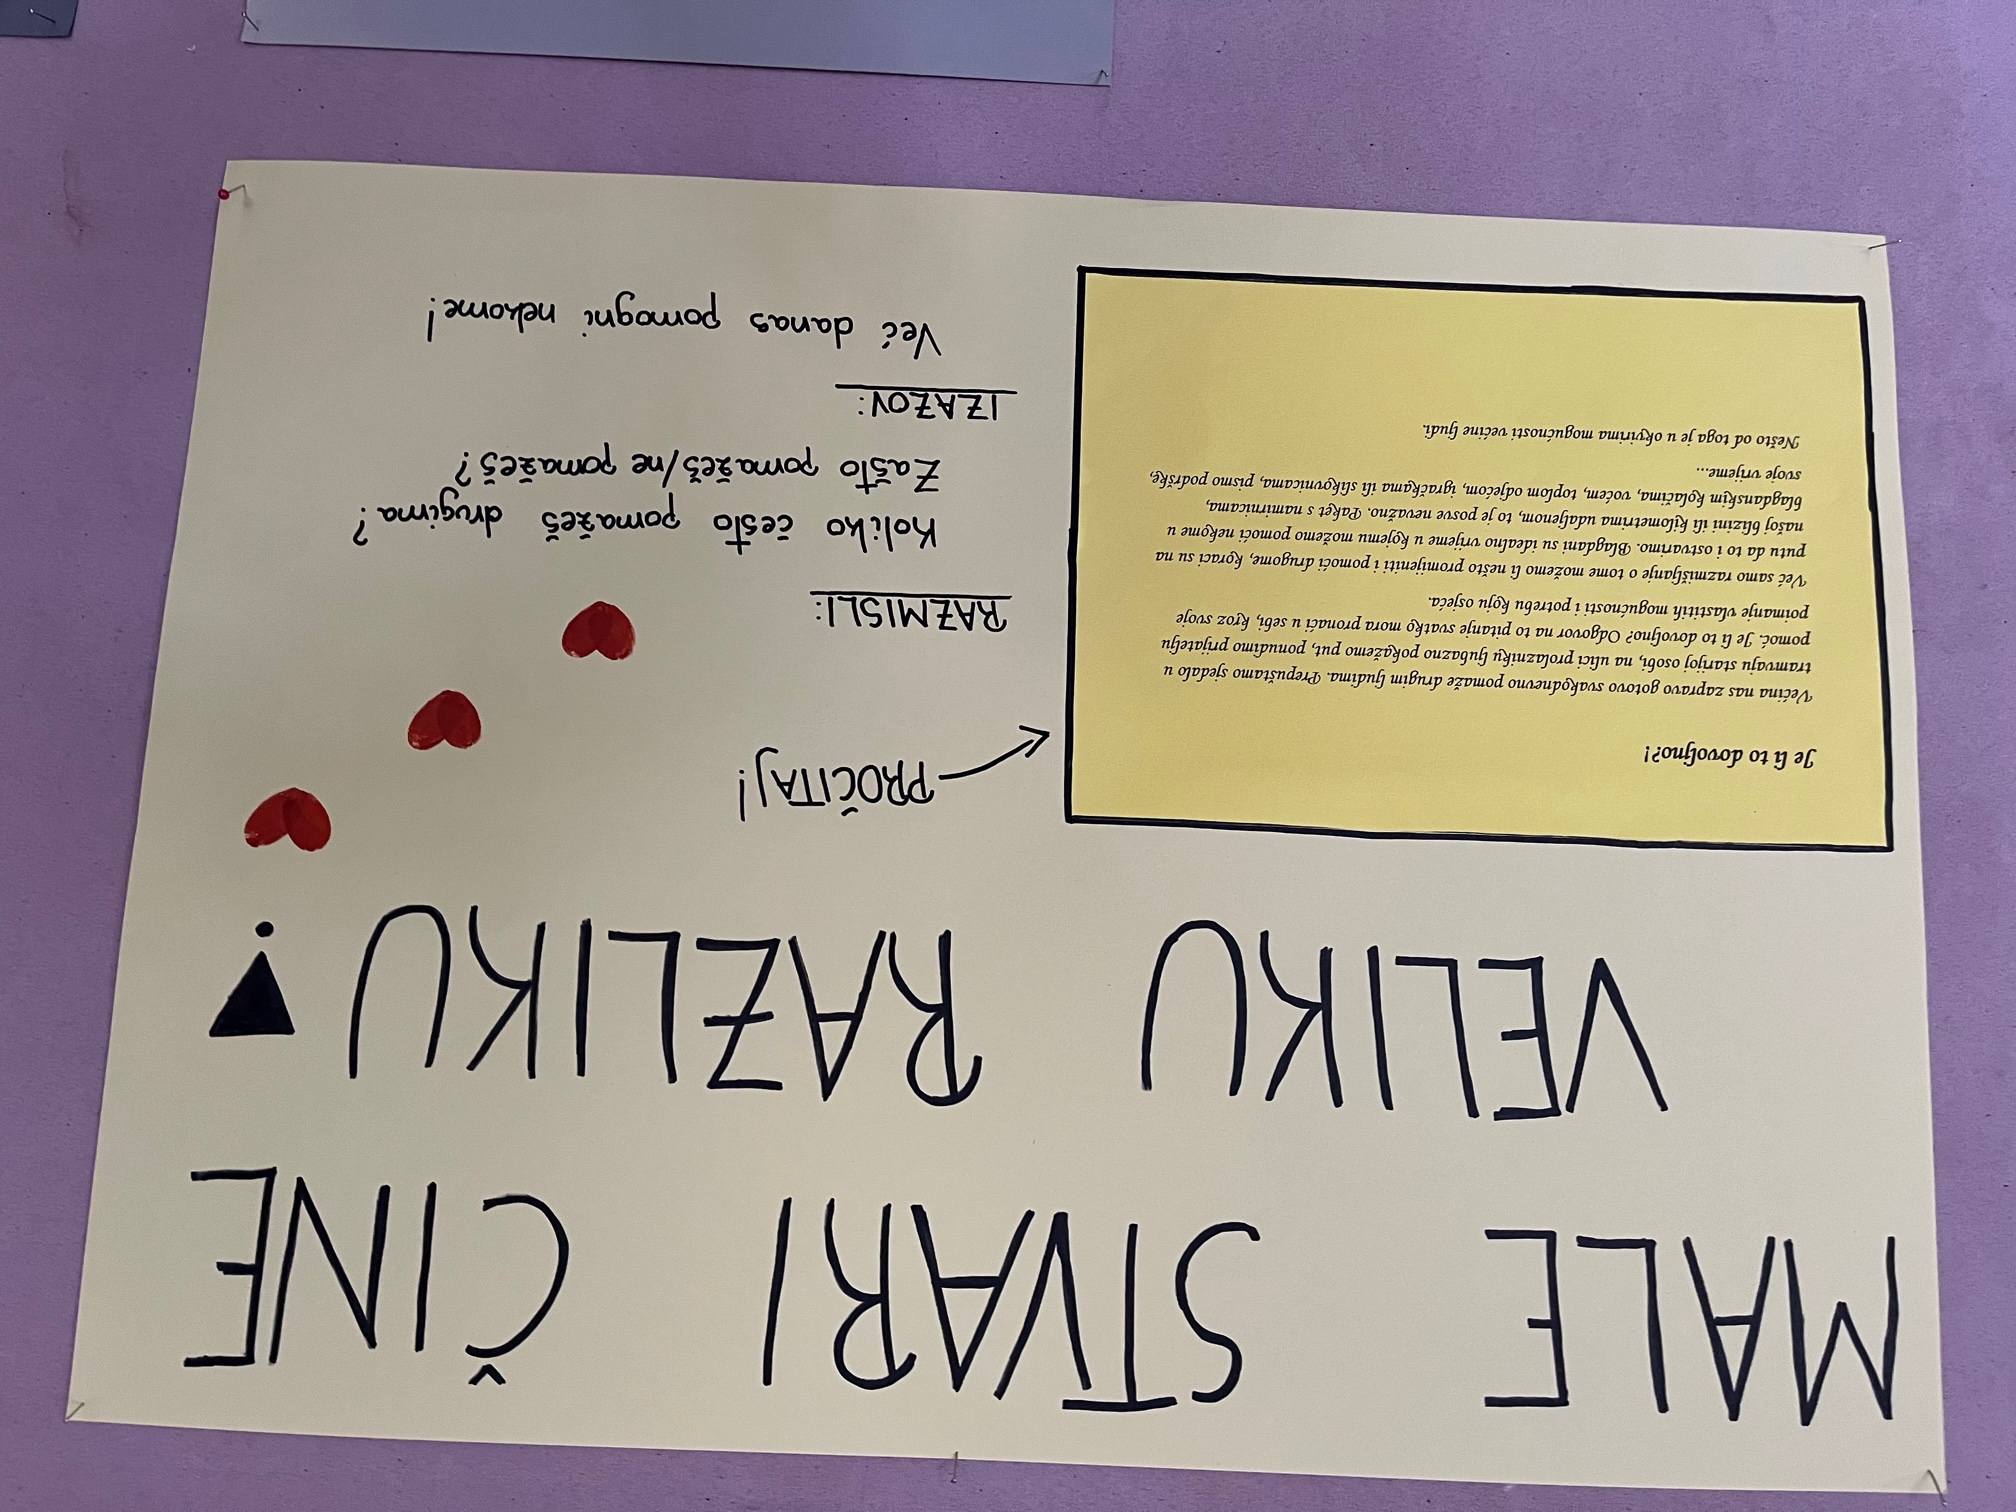 MALE STVARI ČINE
VELIKU RAZLIKU!
Je li to dovoljno?!
Većina nas zapravo gotovo svakodnevno pomaže drugim ljudima. Prepuštamo sjedalo u
tramvaju starijoj osobi, na ulici prolazniku ljubazno pokažemo put, ponudimo prijatelju
pomoć. Je li to dovoljno? Odgovor na to pitanje svatko mora pronaći u sebi, kroz svoje
poimanje vlastitih mogućnosti i potrebu koju osjeća.
Već samo razmišljanje o tome možemo li nešto promijeniti i pomoći drugome, koraci su na
putu da to i ostvarimo. Blagdani su idealno vrijeme u kojemu možemo pomoći nekome u
našoj blizini ili kilometrima udaljenom, to je posve nevažno. Paket s namirnicama,
blagdanskim kolačima, voćem, toplom odjećom, igračkama ili slikovnicama, pismo podrške,
svoje vrijeme...
Nešto od toga je u okvirima mogućnosti većine ljudi.
PROČITAJ!
RAZMISLI:
Koliko često pomažeš drugima?
Zašto pomažeš/ne pomažeš?
IZAZOV:
Već danas pomogni nekome!